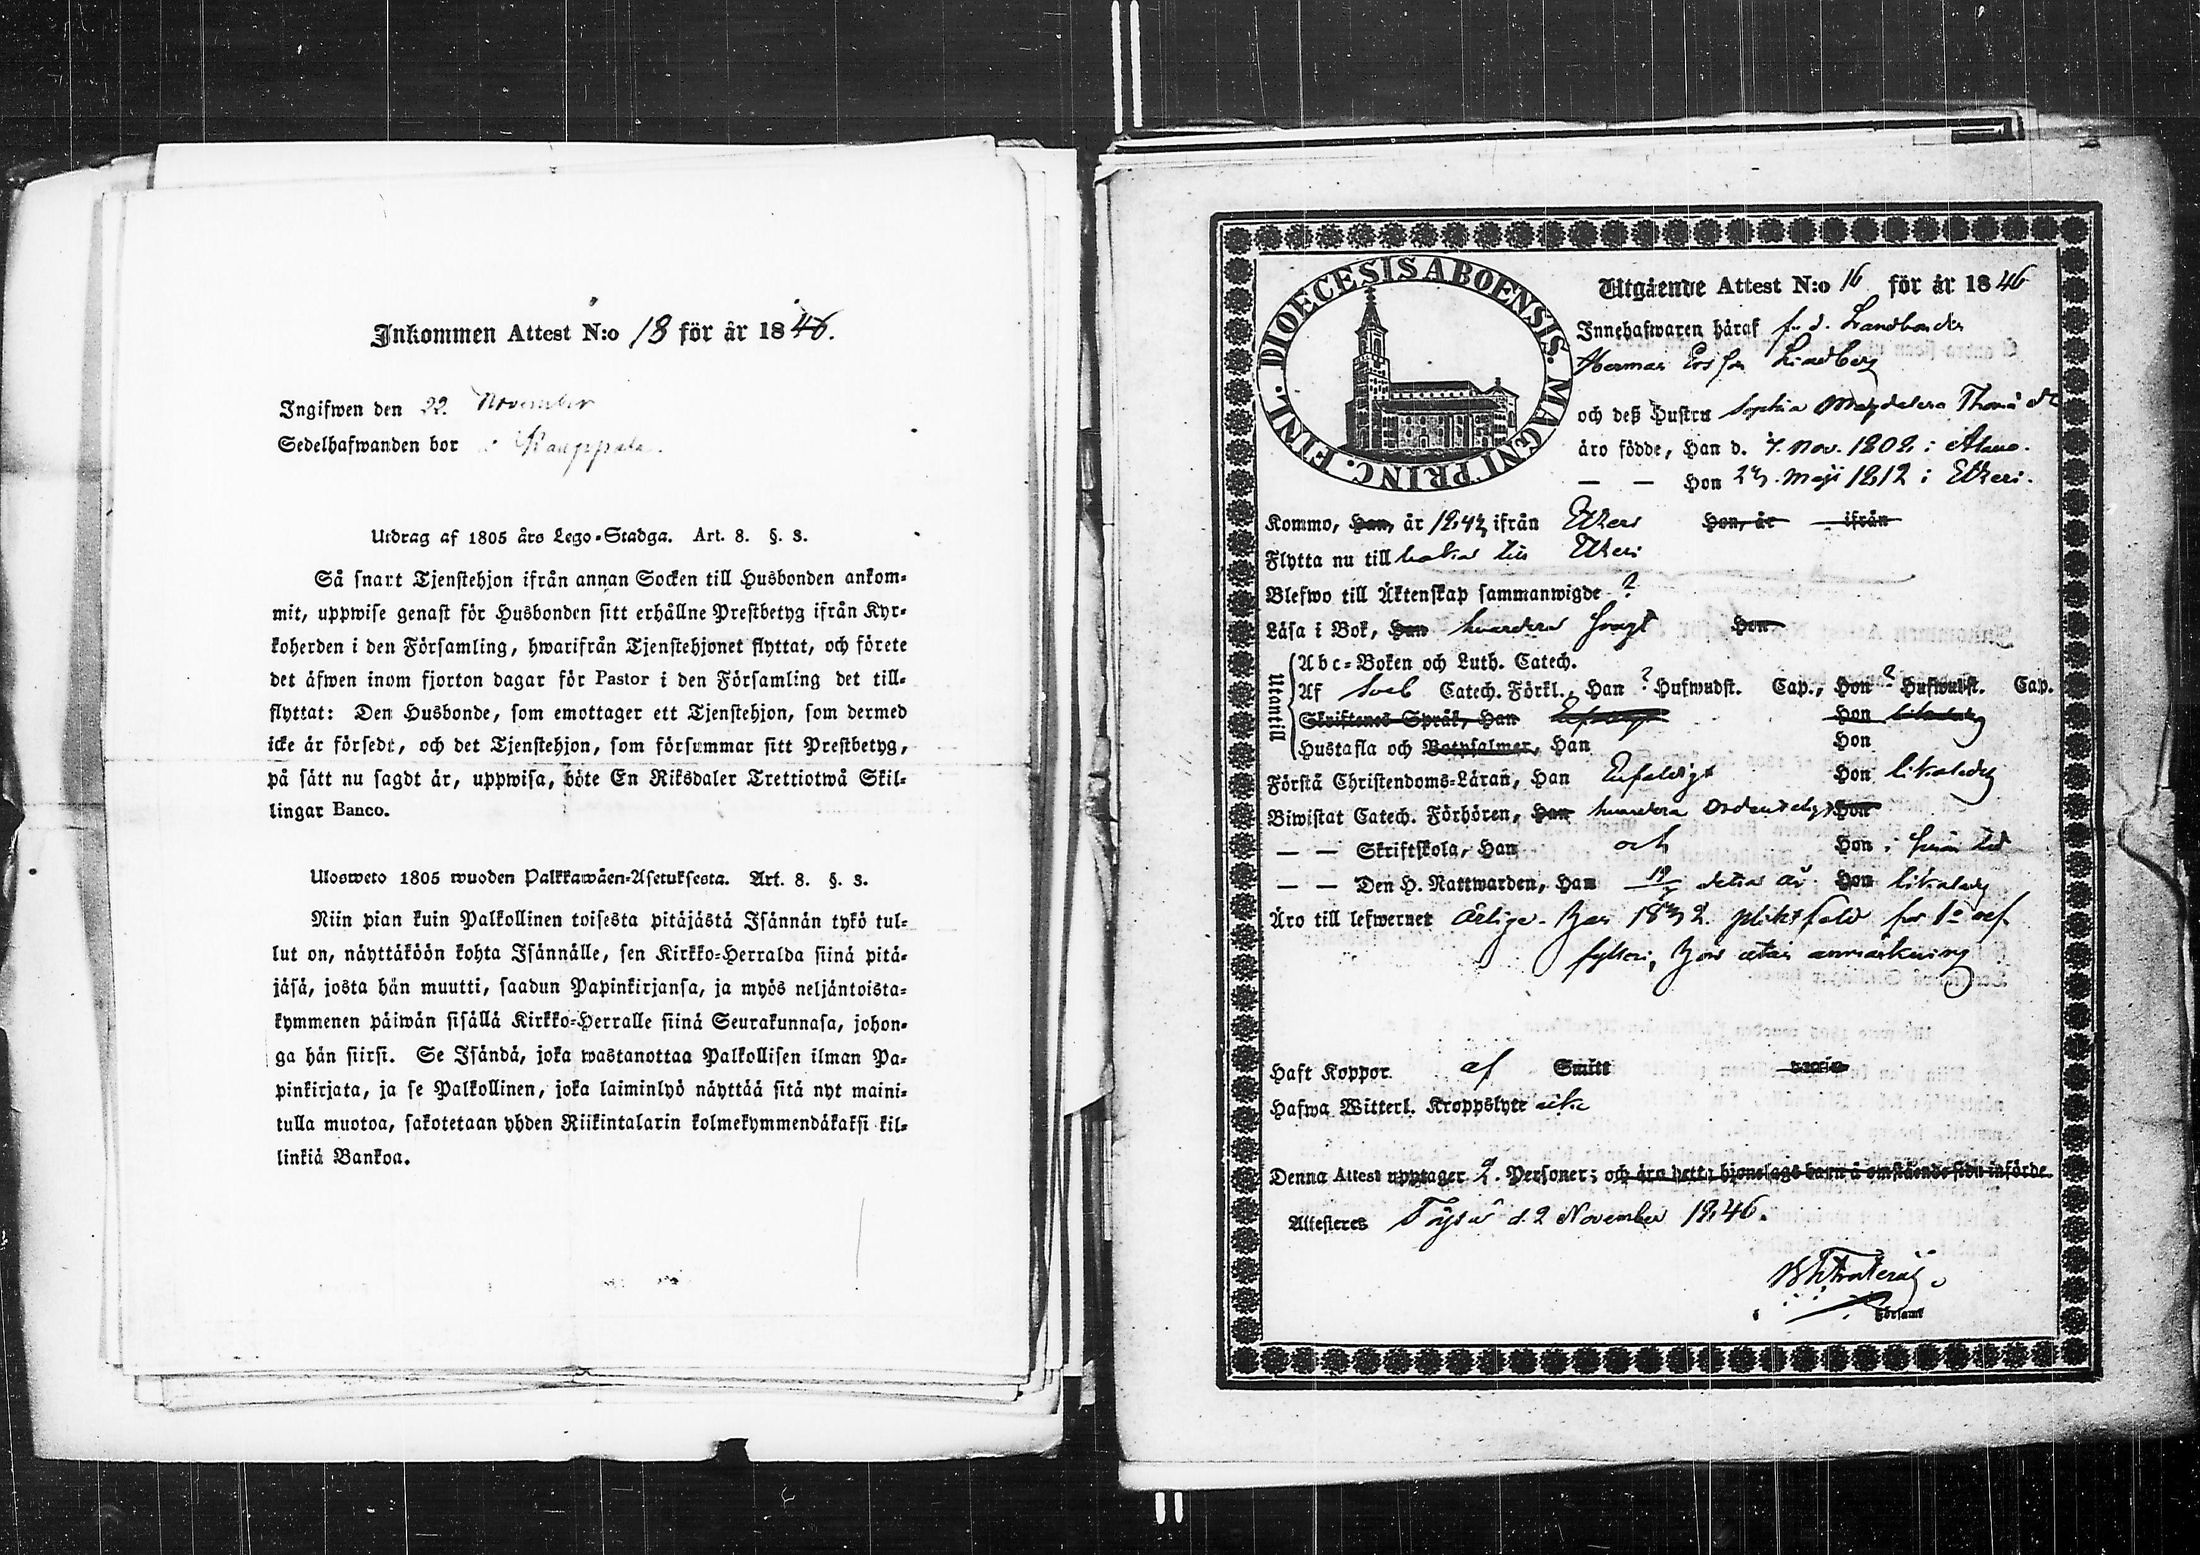 Inkommen Attest N:o 18 för år 1846.
Ingifwen den 22 November
Sedelhafwanden bor i Kauppala.
Utdrag af 1805 års Lego-Stadga. Art. 8. §. 3.
Så snart Tjenstehjon ifrån annan Socken till Husbonden ankom-
mit, uppwise genast för Husbonden sitt erhållne Prestbetyg ifrån Kyr-
koherden i den Församling, hwarifrån Tjenstehjonet flyttat, och förete
det äfwen inom fjorton dagar för Pastor i den Församling det till-
flyttat: Den Husbonde, som emottager ett Tjenstehjon, som dermed
icke är försedt, och det Tjenstehjon, som försummar sitt Prestbetyg,
på sätt nu sagdt är, uppwisa, böte En Riksdaler Trettiotwå Skil-
lingar Banco.
Ulosweto 1805 wuoden Palkkawäen-Asetuksesta. Art. 8. §. 3.
Niin pian kuin Palkollinen toisesta pitäjästä Isännän tykö tul-
lut on, näyttäköön kohta Isännälle, sen Kirkko-Herralda siinä pitä-
jäsä, josta hän muutti, saadun Papinkirjansa, ja myös neljäntoista-
kymmenen päiwän sisällä Kirkko-Herralle siinä Seurakunnasa, johon-
ga hän siirsi. Se Isändä, joka wastanottaa Palkollisen ilman Pa-
pinkirjata, ja se Palkollinen, joka laiminlyö näyttää sitä nyt maini-
tulla muotoa, sakotetaan yhden Riikintalarin kolmekymmendäkaksi kil-
linkiä Bankoa.
DIOECESIS ABOENSIS. MAGNI PRINC. FINL.
Utgående Attest N:o 16 för år 1846
Innehafwaren häraf f. d. Landbonden
Herman Ersson Lindberg
och deß Hustru Sophia Magdalena Thomä dr
äro födde, Han d. 7. Nov. 1802 i Alavo.
— — Hon 27. Maji 1812 i Etseri.
Kommo, Han, år 1842 ifrån Etseri Hon, år ifrån
Flytta nu till baka till Etseri
Blefwo till Äktenskap sammanwigde ?
Läsa i Bok, Han hvardera Svagt Hon
Utantill
Abc-Boken och Luth. Catech.
Af Sveb Catech. Förkl., Han ? Hufwudst. Cap., Hon ? Hufwudst. Cap.
Skriftenes Språk, Han Hon
Hustafla och Botpsalmer, Han Hon
Förstå Christendoms-Läran, Han Enfaldigt Hon likaledes
Biwistat Catech. Förhören, Han hvardera Ordentligt Hon
— — Skriftskola, Han och Hon i sinom tid
— — Den H. Nattwarden, Han detta år Hon likaledes
Äro till lefwernet ärlige. Han 1832 pliktfäld för 1o
fylleri, Hon utan anmärkning
Haft Koppor af Smitt vaccin
Hafwa Witterl. Kroppslyte icke
Denna Attest upptager 2. Personer; och äro detta hjonelags barn å omstående sida införde.
Attesteres Töysä d. 2 November 1846.
i Församl